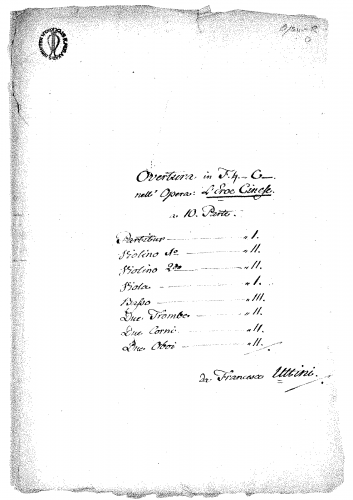 Overtura in
nell' Opera: L'Eroe Cinese.
a 10. Parti.
Partitur — " I.
Violino 1mo — " II.
Violino 2do — " II.
Viola — " I.
Basso — " III.
Due Trombe — " II.
Due Corni — " II.
Due Oboi — " II.
da Francesco Uttini.